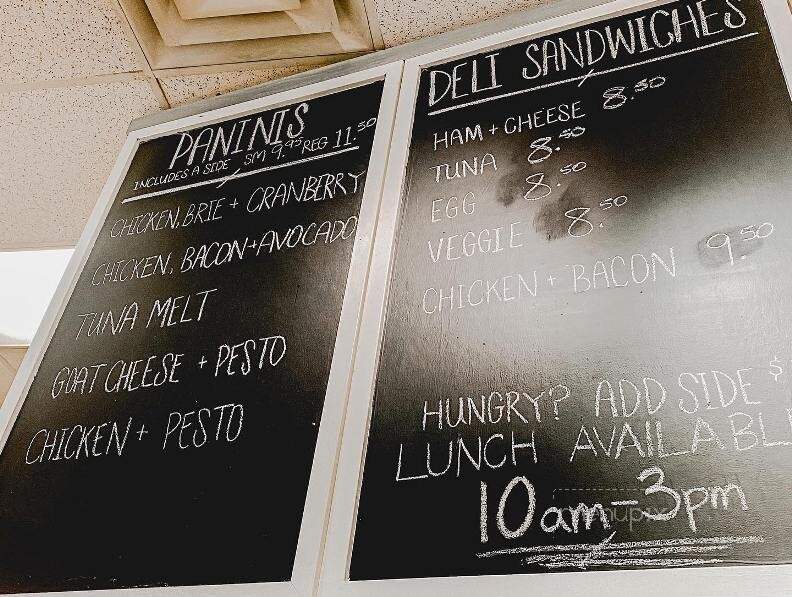 PANINIS
INCLUDES A SIDE SM 9.95 REG 11.50
CHICKEN, BRIE + CRANBERRY
CHICKEN, BACON + AVOCADO
TUNA MELT
GOAT CHEESE + PESTO
CHICKEN + PESTO
DELI SANDWICHES
HAM + CHEESE 8.50
TUNA 8.50
EGG 8.50
VEGGIE 8.50
CHICKEN + BACON 9.50
HUNGRY? ADD SIDE $
LUNCH AVAILABL
10am-3pm
menupix